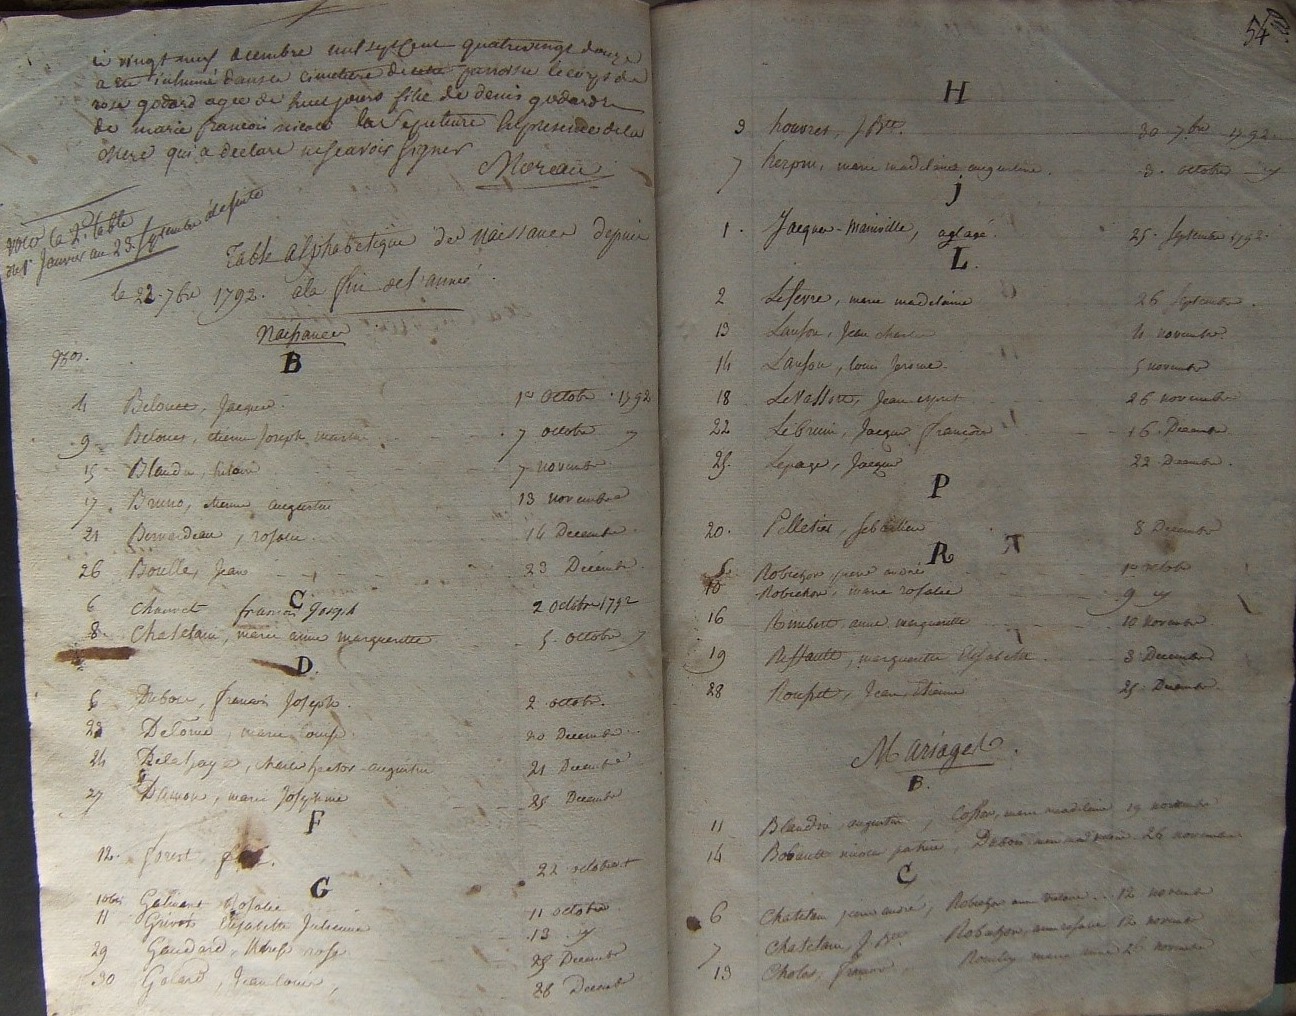 vingt neuf decembre mil sept cent quatre vingt douze
a été inhumé dans le cimetiere de cette parroisse le corps de
rose godard agée de huit jours fille de denis godard &
de marie francois nicole la Sepulture En presence de la
mere qui a declaré ne scavoir signer
Moreau
voir la 2e table
du 1er Janvier au 23 Septembre
Table alphabetique de Naissances depuis
le 22 7bre 1792. a la fin de l'année.
Naissances
Nos.
B
4 Belouet, Jacques 1er Octobre 1792
9 Belouet, etienne Joseph 7 octobre
15 Blandin, hilaire 7 novembre
17 Bruno, etienne augustin 13 novembre
21 Bernardeau, rosalie 14 Decembre
26 Boelle, Jean 23 Décembre
C
6 Chauvet francois Joseph 2 octobre 1792
8 Chatelain, marie anne marguerite 5 octobre
D.
6 Dubois, francois Joseph 2 octobre.
23 Delome, marie louise 20 Decembre
24 Delahaye, charles hector augustin 21 Decembre
27 Damon, marie Josephine 25 Decembre
F
12. forest, 22 octobre
G
10bis Galinant Rosalie 11 octobre
11 Grivot Elisabeth Julienne 13
29 Gaudard, therese rose 25 Decembre
30 Golard, Jean louis, 28 Decembre
54
H
3 houvret, J Bte. 30 7bre 1792
7 herpin, marie madelaine augustine. 3. octobre
J
1. Jacques-Mainville, aglaé. 25 Septembre 1792.
L.
2 Lefevre, marie madelaine 26 Septembre.
13 Lanson, Jean charles 4 novembre
14 Lanson, louis Jerome. 5 novembre
18 Levassor, Jean esprit 26 novembre
22 Lebrun, Jacques francois 16 Decembre
25. Lepage, Jacques 22 Decembre.
P
20. Pelletier, Sebastien 8 Decembre
R
5 Robichon, pierre andré 1er octobre
10 Robichon, marie rosalie 9
16 Rimbert, anne marguerite 10 novembre
19 Ruffault, marguerite Elisabeth 3 Decembre
28 Roussit, Jean etienne 25 Decembre
Mariages.
B.
11 Blandin, augustin, marie madelaine 19 novembre
14 Bobault nicolas patrice, Dubois 26 novembre
C
6 Chatelain pierre andré, Robichon 12 novembre
7 Chatelain, J Bte Robichon, anne rosalie 12 novembre
13 Cholet, francois marie anne 26 novembre